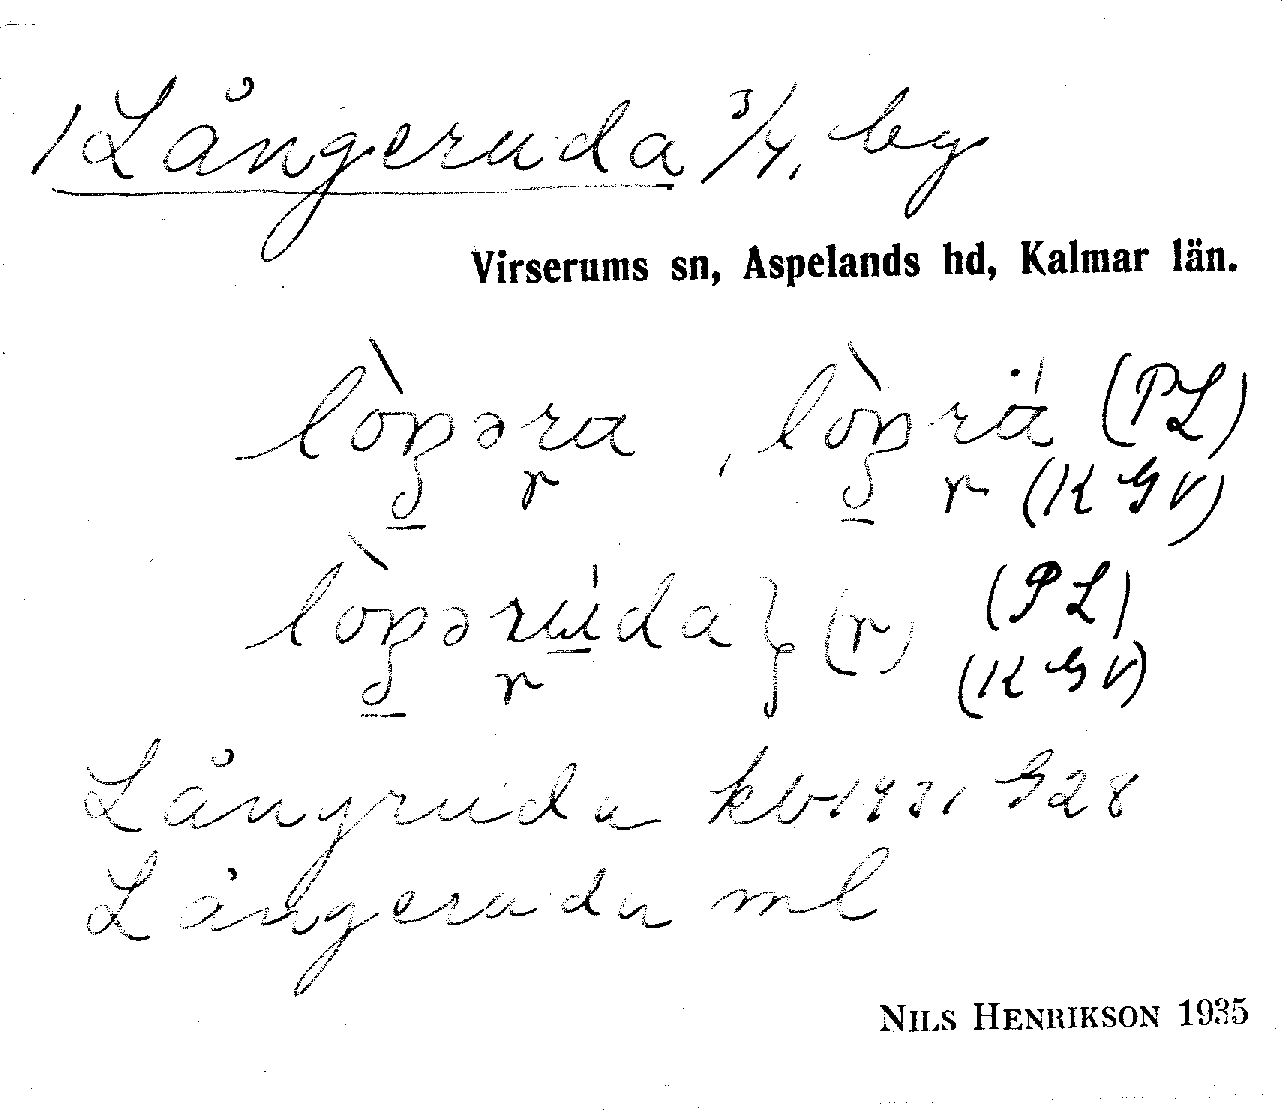 1 Långeruda 3/4, by
Virserums sn, Aspelands hd, Kalmar län.
lòŋəra, lòŋrá (PL)
r r (KGV)
lòŋərúda } (r) (PL)
r (KGV)
Långruda kb 1931 G28
Långeruda ml
NILS HENRIKSON 1935